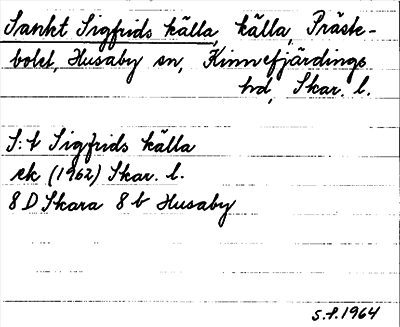 Sankt Sigfrids källa, källa, Präste-
bolet, Husaby sn, Kinnefjärdings
hd, Skar. l.
S:t Sigfrids källa
ek (1962) Skar. l.
8 D Skara 8 b Husaby
s.f. 1964